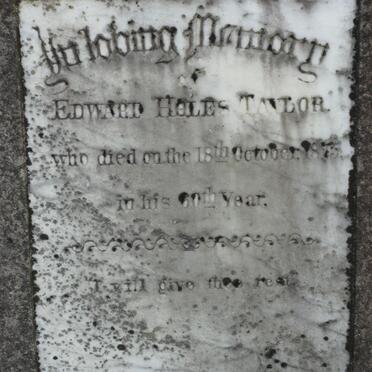 In loving Memory
of
EDWARD HOLES TAYLOR.
who died on the 18th October,
in his 60th Year.
I will give thee rest